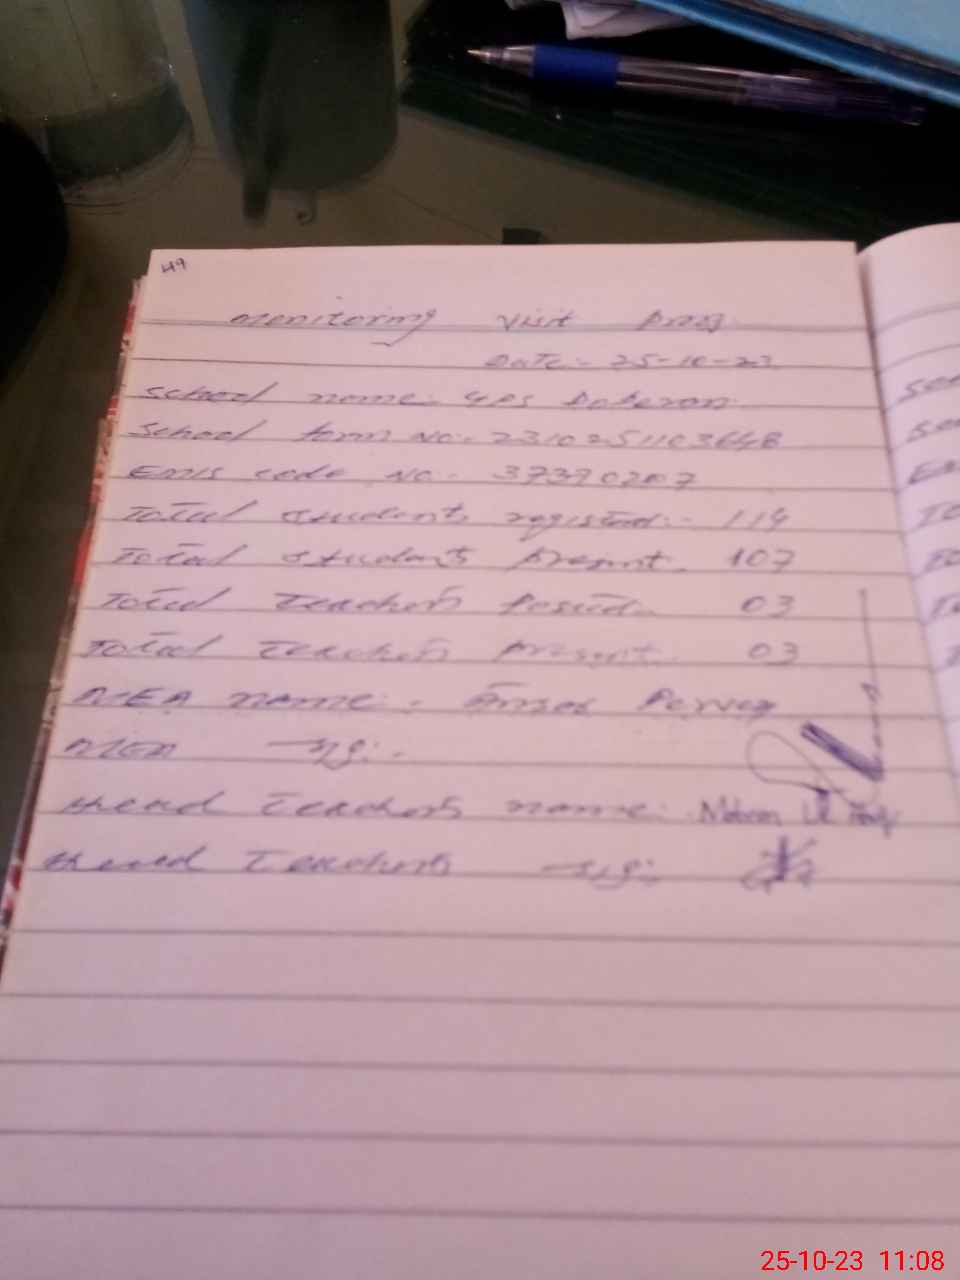 49
Monitoring visit Proof
Date:- 25-10-23
School name:- GPS Dakeran
School form No:- 2310251103648
EMIS code No:- 37370207
Total students registerd:- 114
Total students present. 107
Total Teachers Posted. 03
Total Teachers present. 03
MEA name:- Pervez
MEA sig:-
Head Teachers name:
Head Teachers sig:
25-10-23 11:08